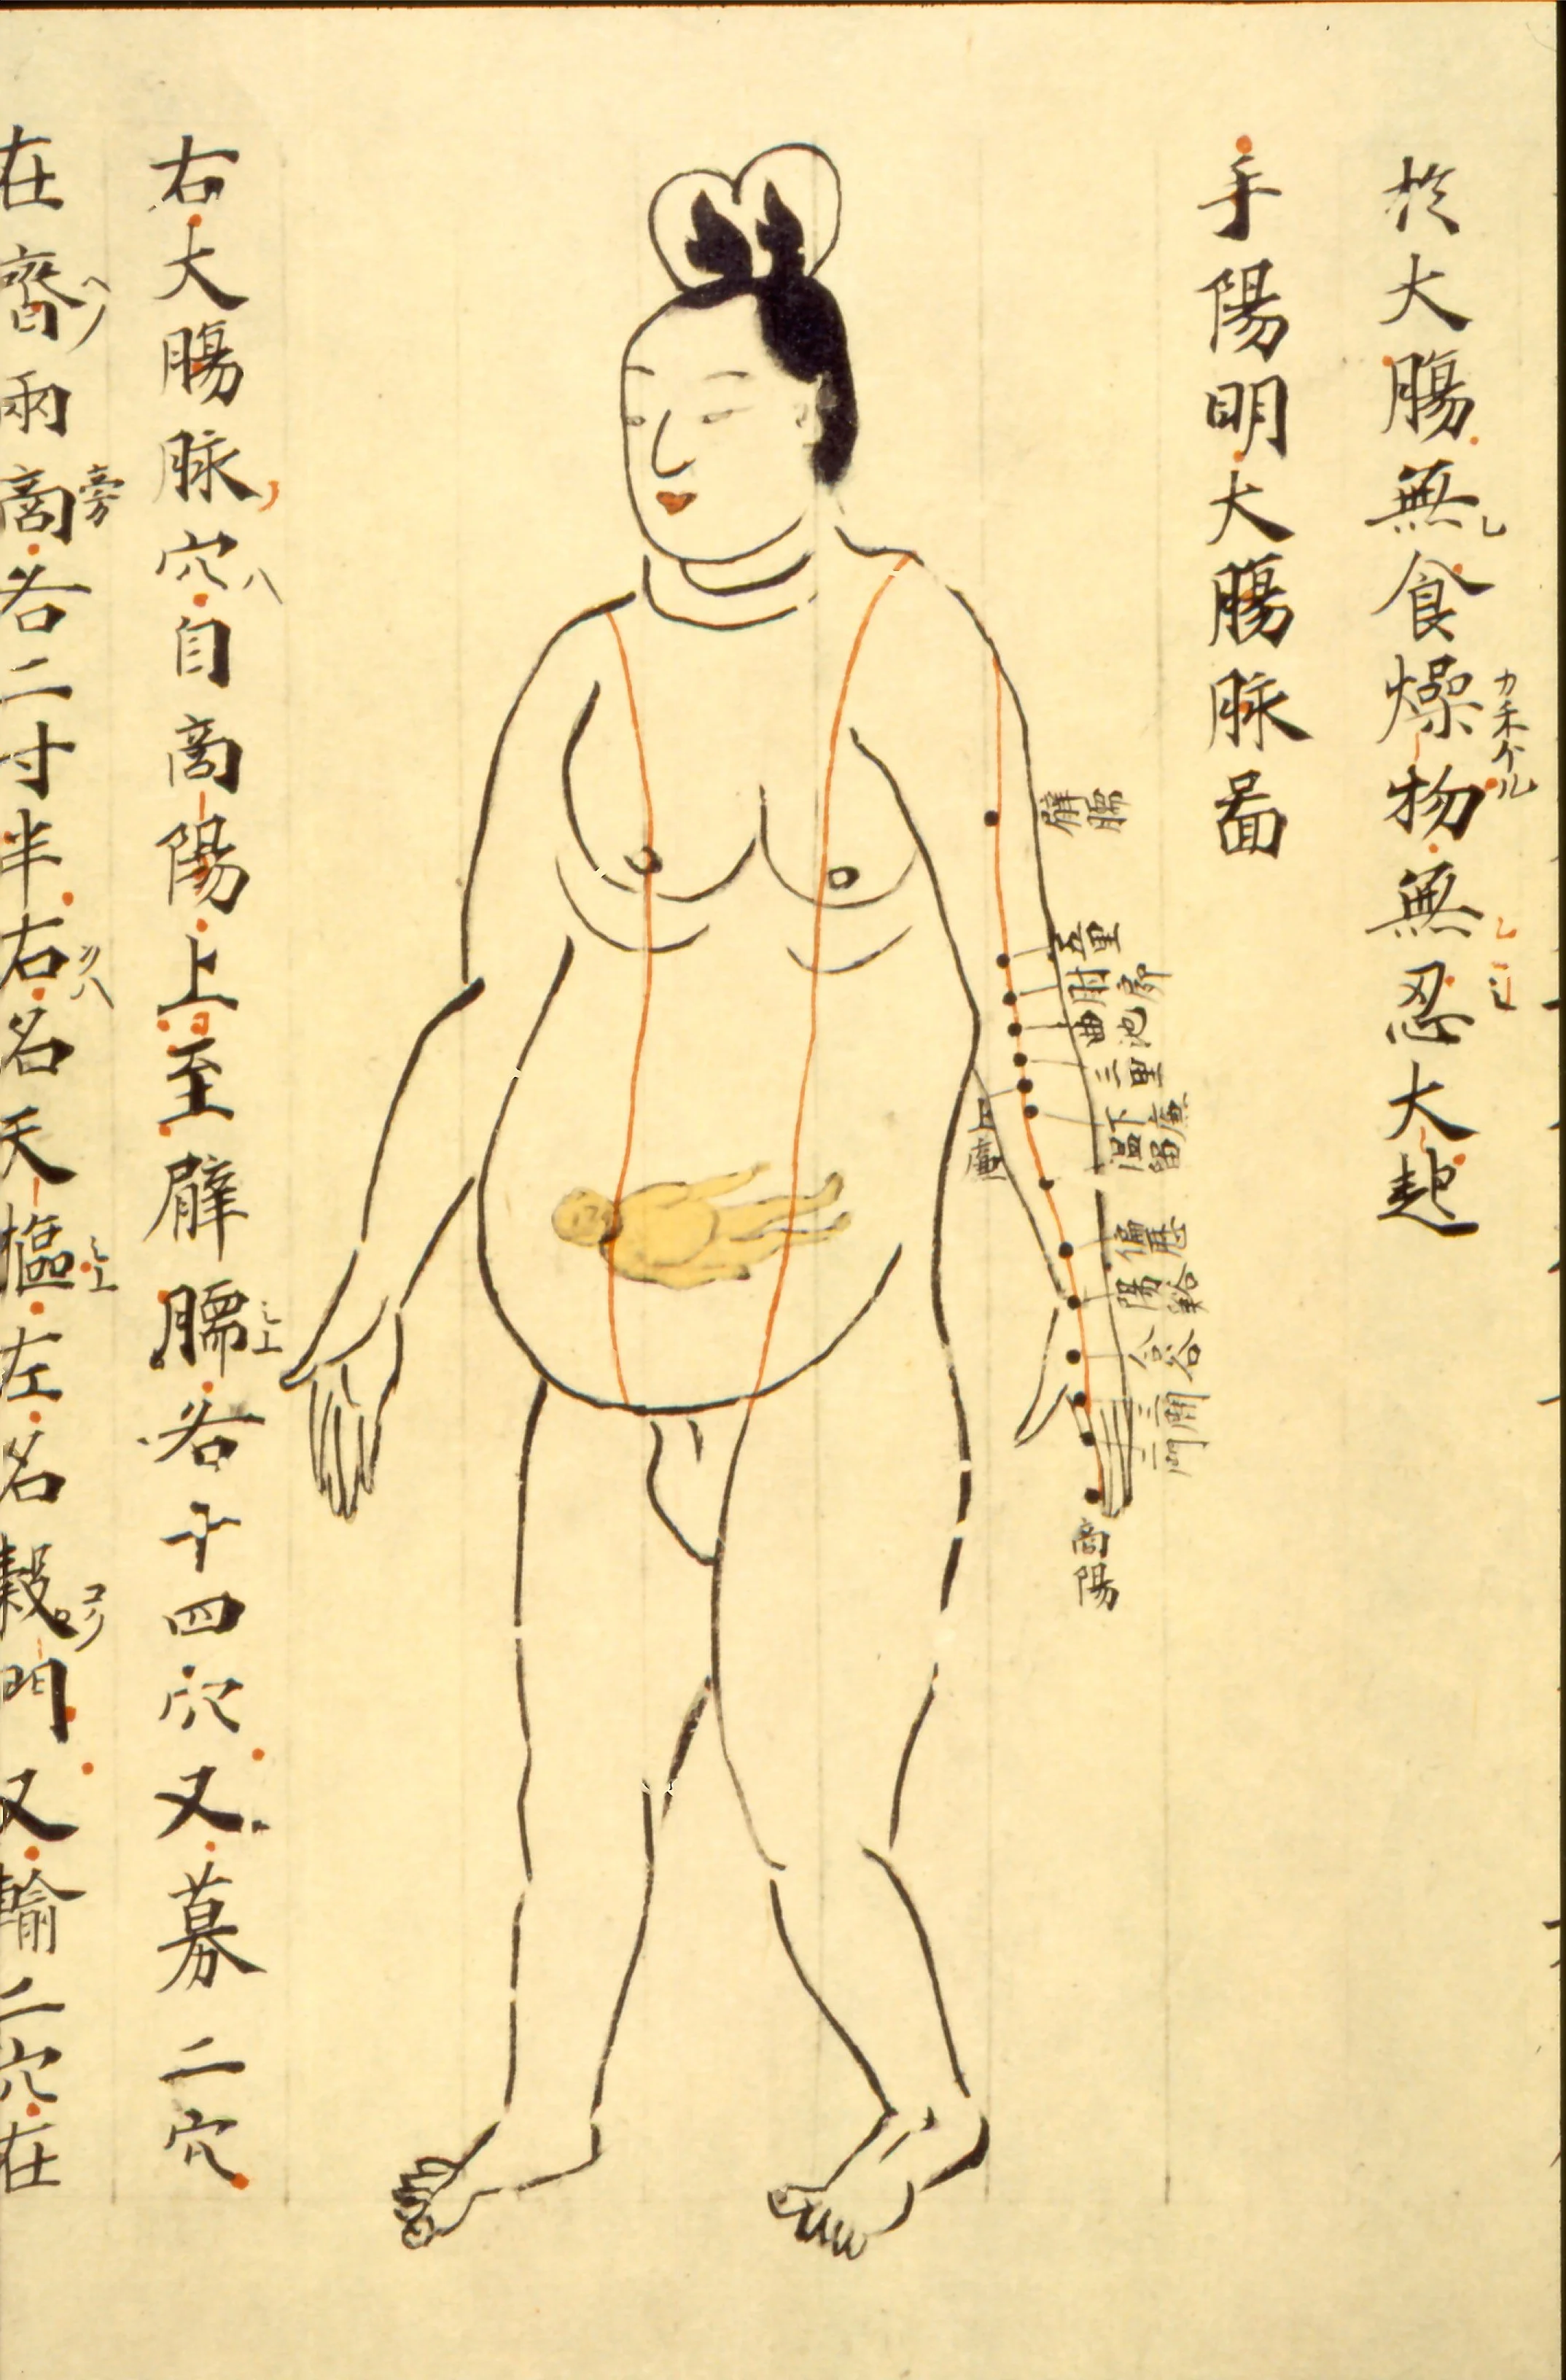 於大腸無食燥物無忍大起
手陽明大腸脉圖
臂臑
五里
肘窌
曲池
三里
上廉
下廉
温留
偏歴
陽谿
合谷
三間
二間
商陽
右大腸脉穴自商陽上至臂臑各十四穴又募二穴
在齊兩商各二寸半右名天樞左名穀門又輸二穴在
旁